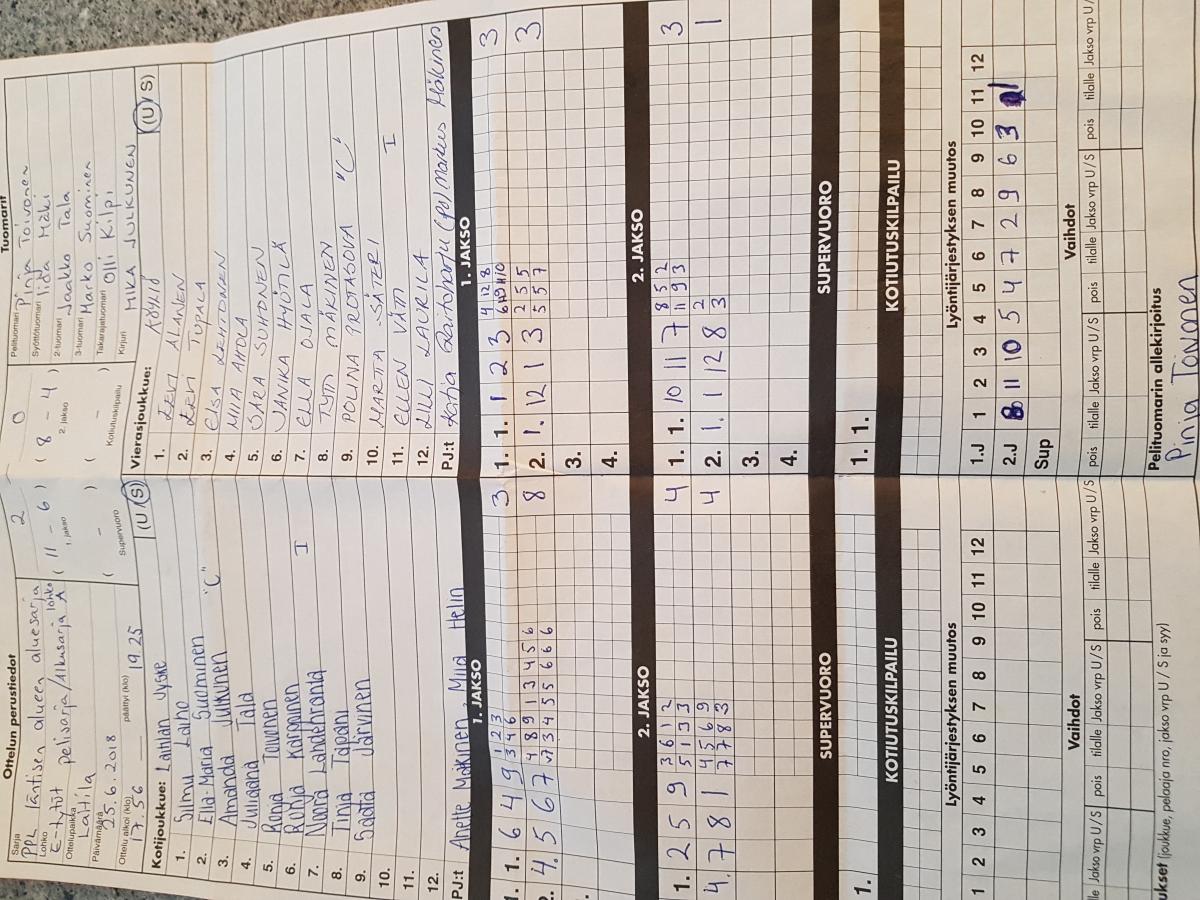 Ottelun perustiedot
Sarja
PPL läntisen alueen aluesarja
Lohko
E-tytöt pelisarja/Alkusarja A lohko
Ottelupaikka
Laitila
Päivämäärä
25.6.2018
Ottelu alkoi (klo) päättyi (klo)
17.56 — 19.25
2 ( 0
( 11 - 6 ) ( 8 - 4 )
1. jakso 2. jakso
( - ) ( - )
Supervuoro Kotiutuskilpailu
Tuomarit
Pelituomari Pinja Toivonen
Syöttötuomari Iida Mäki
2-tuomari Jaakko Tala
3-tuomari Marko Suominen
Takarajatuomari Olli Kilpi
Kirjuri MIKA JULKUNEN
Kotijoukkue: Laitilan Jyske (U/S)
1. Silmu Laiho
2. Ella-Maria Suominen
3. Amanda Julkunen "C"
4. Juliaana Tala
5. Ronja Toivonen
6. Ronja Karppinen
7. Noora Lähdehranta I
8. Tinja Tapani
9. Saaga Järvinen
10.
11.
12.
PJ:t Anette Mäkinen, Miia Helin
Vierasjoukkue: KÖYLIÖ (U/S)
1. ALANEN
2. TUPALA
3. ELSA LEHTONEN
4. MIIA AHOLA
5. SARA SUHONEN
6. JANIKA HYÖTILÄ
7. ELLA OJALA
8. TYTTI MÄKINEN
9. POLINA PROTASOVA "C"
10. MARTTA SÄTERI
11. ELLEN I
12. LILLI LAURILA
PJ:t Katja (PJ) Markus Mäkinen
1. JAKSO
1. 1. 6 4 9 1 2 3 3
3 4 6
2. 4. 5 6 7 4 8 9 1 3 4 5 6 8
3 4 5 5 6 6 6
1. JAKSO
1. 1. 1 2 3 4 12 8 3
2. 1. 12 1 3 2 5 5 3
5 5 7
3.
4.
2. JAKSO
1. 2 5 9 3 6 1 2 4
5 1 3 3
4. 7 8 1 4 5 6 9 4
7 7 8 3
2. JAKSO
1. 1. 10 11 7 8 5 2 3
11 9 3
2. 1. 1 12 8 2 1
3
3.
4.
SUPERVUORO
1.
SUPERVUORO
1. 1.
KOTIUTUSKILPAILU
KOTIUTUSKILPAILU
Lyöntijärjestyksen muutos
1 2 3 4 5 6 7 8 9 10 11 12
Lyöntijärjestyksen muutos
1.J 1 2 3 4 5 6 7 8 9 10 11 12
2.J 8 11 10 5 4 7 2 9 6 3 1
Sup
Vaihdot
tilalle Jakso vrp U/S pois tilalle Jakso vrp U/S pois tilalle Jakso vrp U/S
Vaihdot
pois tilalle Jakso vrp U/S pois tilalle Jakso vrp U/S pois tilalle Jakso vrp U/
(joukkue, pelaaja nro, jakso vrp U/S ja syy)
Pelituomarin allekirjoitus
Pinja Toivonen